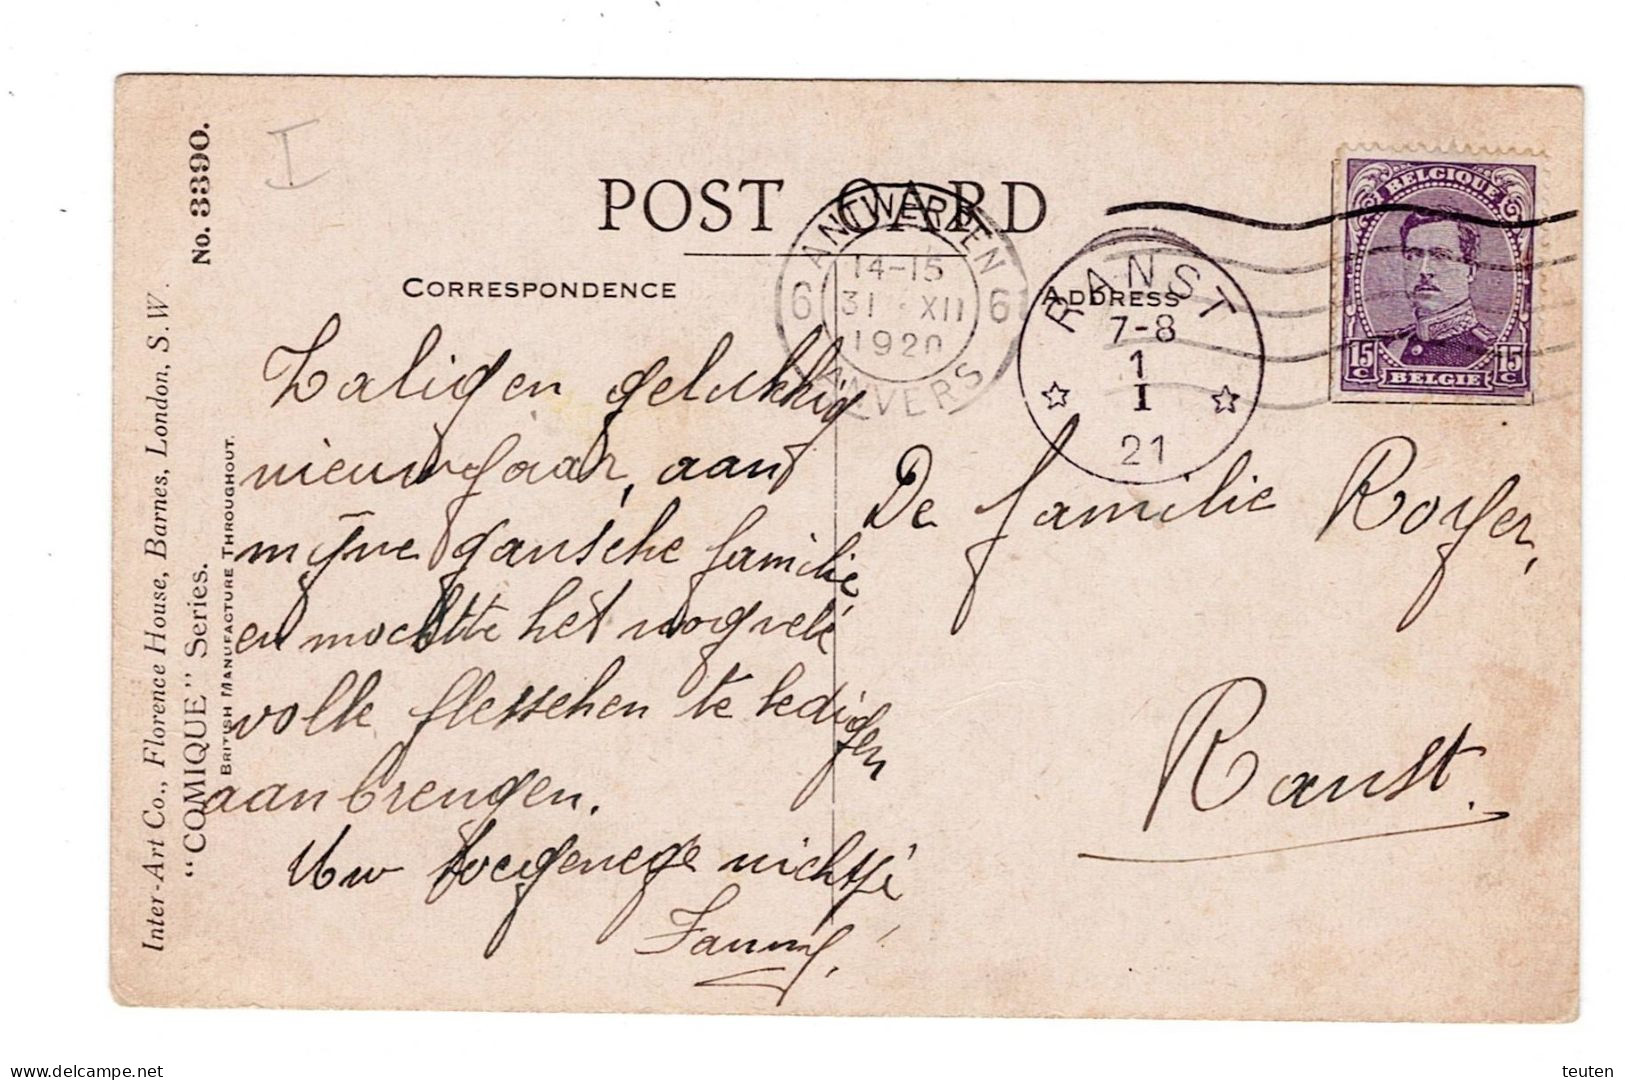 No. 3390.
I
Inter-Art Co., Florence House, Barnes, London, S.W.
"COMIQUE" Series.
BRITISH MANUFACTURE THROUGHOUT.
POST CARD
CORRESPONDENCE
ADDRESS
ANTWERPEN
6 14-15 6
31 · XII
1920
ANVERS
RANST
7-8
1
I
21
BELGIQUE
15 C 15 C
BELGIE
Zaligen gelukkig
nieuwjaar, aan
mijne gansche familie
en mochtte het nog vele
volle flesschen te ledigen
aanbrengen.
Uw toegenege nichtje
Fanny.
De familie Royer,
Ranst.
delcampe.net
teuten